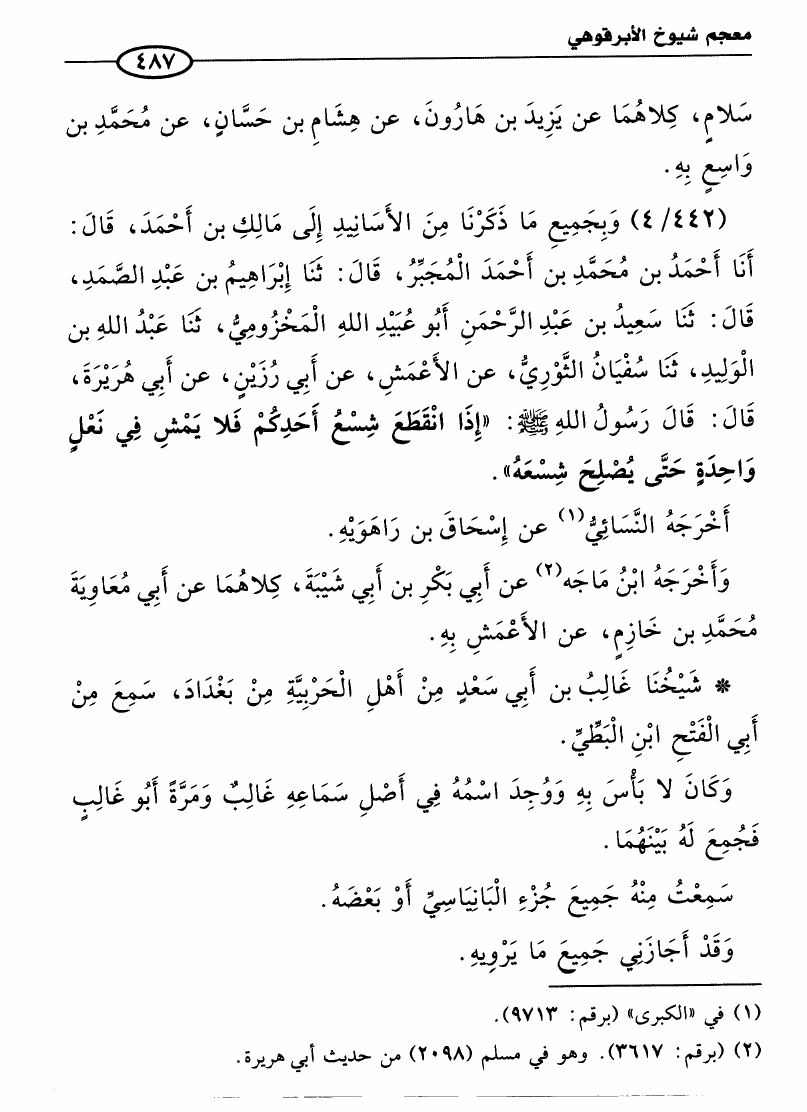 معجم شيوخ الأبرقوهي
٤٨٧
سَلامٍ، كِلاهُمَا عن يَزِيدَ بن هَارُونَ، عن هِشَامِ بن حَسَّانٍ، عن مُحَمَّدِ بن
وَاسِعٍ بِهِ.
(٤/٤٤٢) وَبِجَمِيعِ مَا ذَكَرْنَا مِنَ الأَسَانِيدِ إِلَى مَالِكِ بن أَحْمَدَ، قَالَ:
أَنَا أَحْمَدُ بن مُحَمَّدِ بن أَحْمَدَ الْمُجَبِّرُ، قَالَ: ثَنَا إِبْرَاهِيمُ بن عَبْدِ الصَّمَدِ،
قَالَ: ثَنَا سَعِيدُ بن عَبْدِ الرَّحْمَنِ أَبُو عُبَيْدِ اللهِ الْمَخْزُومِيُّ، ثَنَا عَبْدُ اللهِ بن
الْوَلِيدِ، ثَنَا سُفْيَانُ الثَّوْرِيُّ، عن الأَعْمَشِ، عن أَبِي رُزَيْنٍ، عن أَبِي هُرَيْرَةَ،
قَالَ: قَالَ رَسُولُ اللهِ ﷺ: «إِذَا انْقَطَعَ شِسْعُ أَحَدِكُمْ فَلا يَمْشِ فِي نَعْلٍ
وَاحِدَةٍ حَتَّى يُصْلِحَ شِسْعَهُ».
أَخْرَجَهُ النَّسَائِيُّ(١) عن إِسْحَاقَ بن رَاهَوَيْهِ.
وَأَخْرَجَهُ ابْنُ مَاجَه(٢) عن أَبِي بَكْرِ بن أَبِي شَيْبَةَ، كِلاهُمَا عن أَبِي مُعَاوِيَةَ
مُحَمَّدِ بن خَازِمٍ، عن الأَعْمَشِ بِهِ.
* شَيْخُنَا غَالِبُ بن أَبِي سَعْدٍ مِنْ أَهْلِ الْحَرْبِيَّةِ مِنْ بَغْدَادَ، سَمِعَ مِنْ
أَبِي الْفَتْحِ ابْنِ الْبَطِّيِّ.
وَكَانَ لا بَأْسَ بِهِ وَوُجِدَ اسْمُهُ فِي أَصْلِ سَمَاعِهِ غَالِبٌ وَمَرَّةً أَبُو غَالِبٍ
فَجُمِعَ لَهُ بَيْنَهُمَا.
سَمِعْتُ مِنْهُ جَمِيعَ جُزْءِ الْبَانِيَاسِيِّ أَوْ بَعْضَهُ.
وَقَدْ أَجَازَنِي جَمِيعَ مَا يَرْوِيهِ.
(١) في «الكبرى» (برقم: ٩٧١٣).
(٢) (برقم: ٣٦١٧). وهو في مسلم (٢٠٩٨) من حديث أبي هريرة.